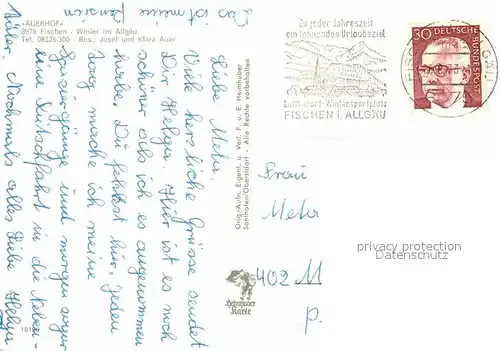 Das ist meine Pension
»AUERHOF«
8975 Fischen - Weiler im Allgäu
Tel. 08326-300 Bes.: Josef und Klara Auer
Liebe Meta.
Viele herzliche Grüsse sendet
Dir Helga. Hier ist es noch
schöner als ich es angenommen
habe. Du fehlst hier. jeden
Tag mache ich meine
Spaziergänge und morgen sogar
eine Kutschfahrt in die Neben-
täler. Nochmals alles Liebe Helga
Orig.-Aufn. Eigent. u. Verl. F. u. E. Heimhuber
Sonthofen/Oberstdorf - Alle Rechte vorbehalten
Zu jeder Jahreszeit
ein lohnendes Urlaubsziel
Luftkurort-Wintersportplatz
FISCHEN I. ALLGÄU
30
DEUTSCHE
BUNDESPOST
Frau
Meta
402 M
p.
privacy protection
Datenschutz
Heimhuber
Karte